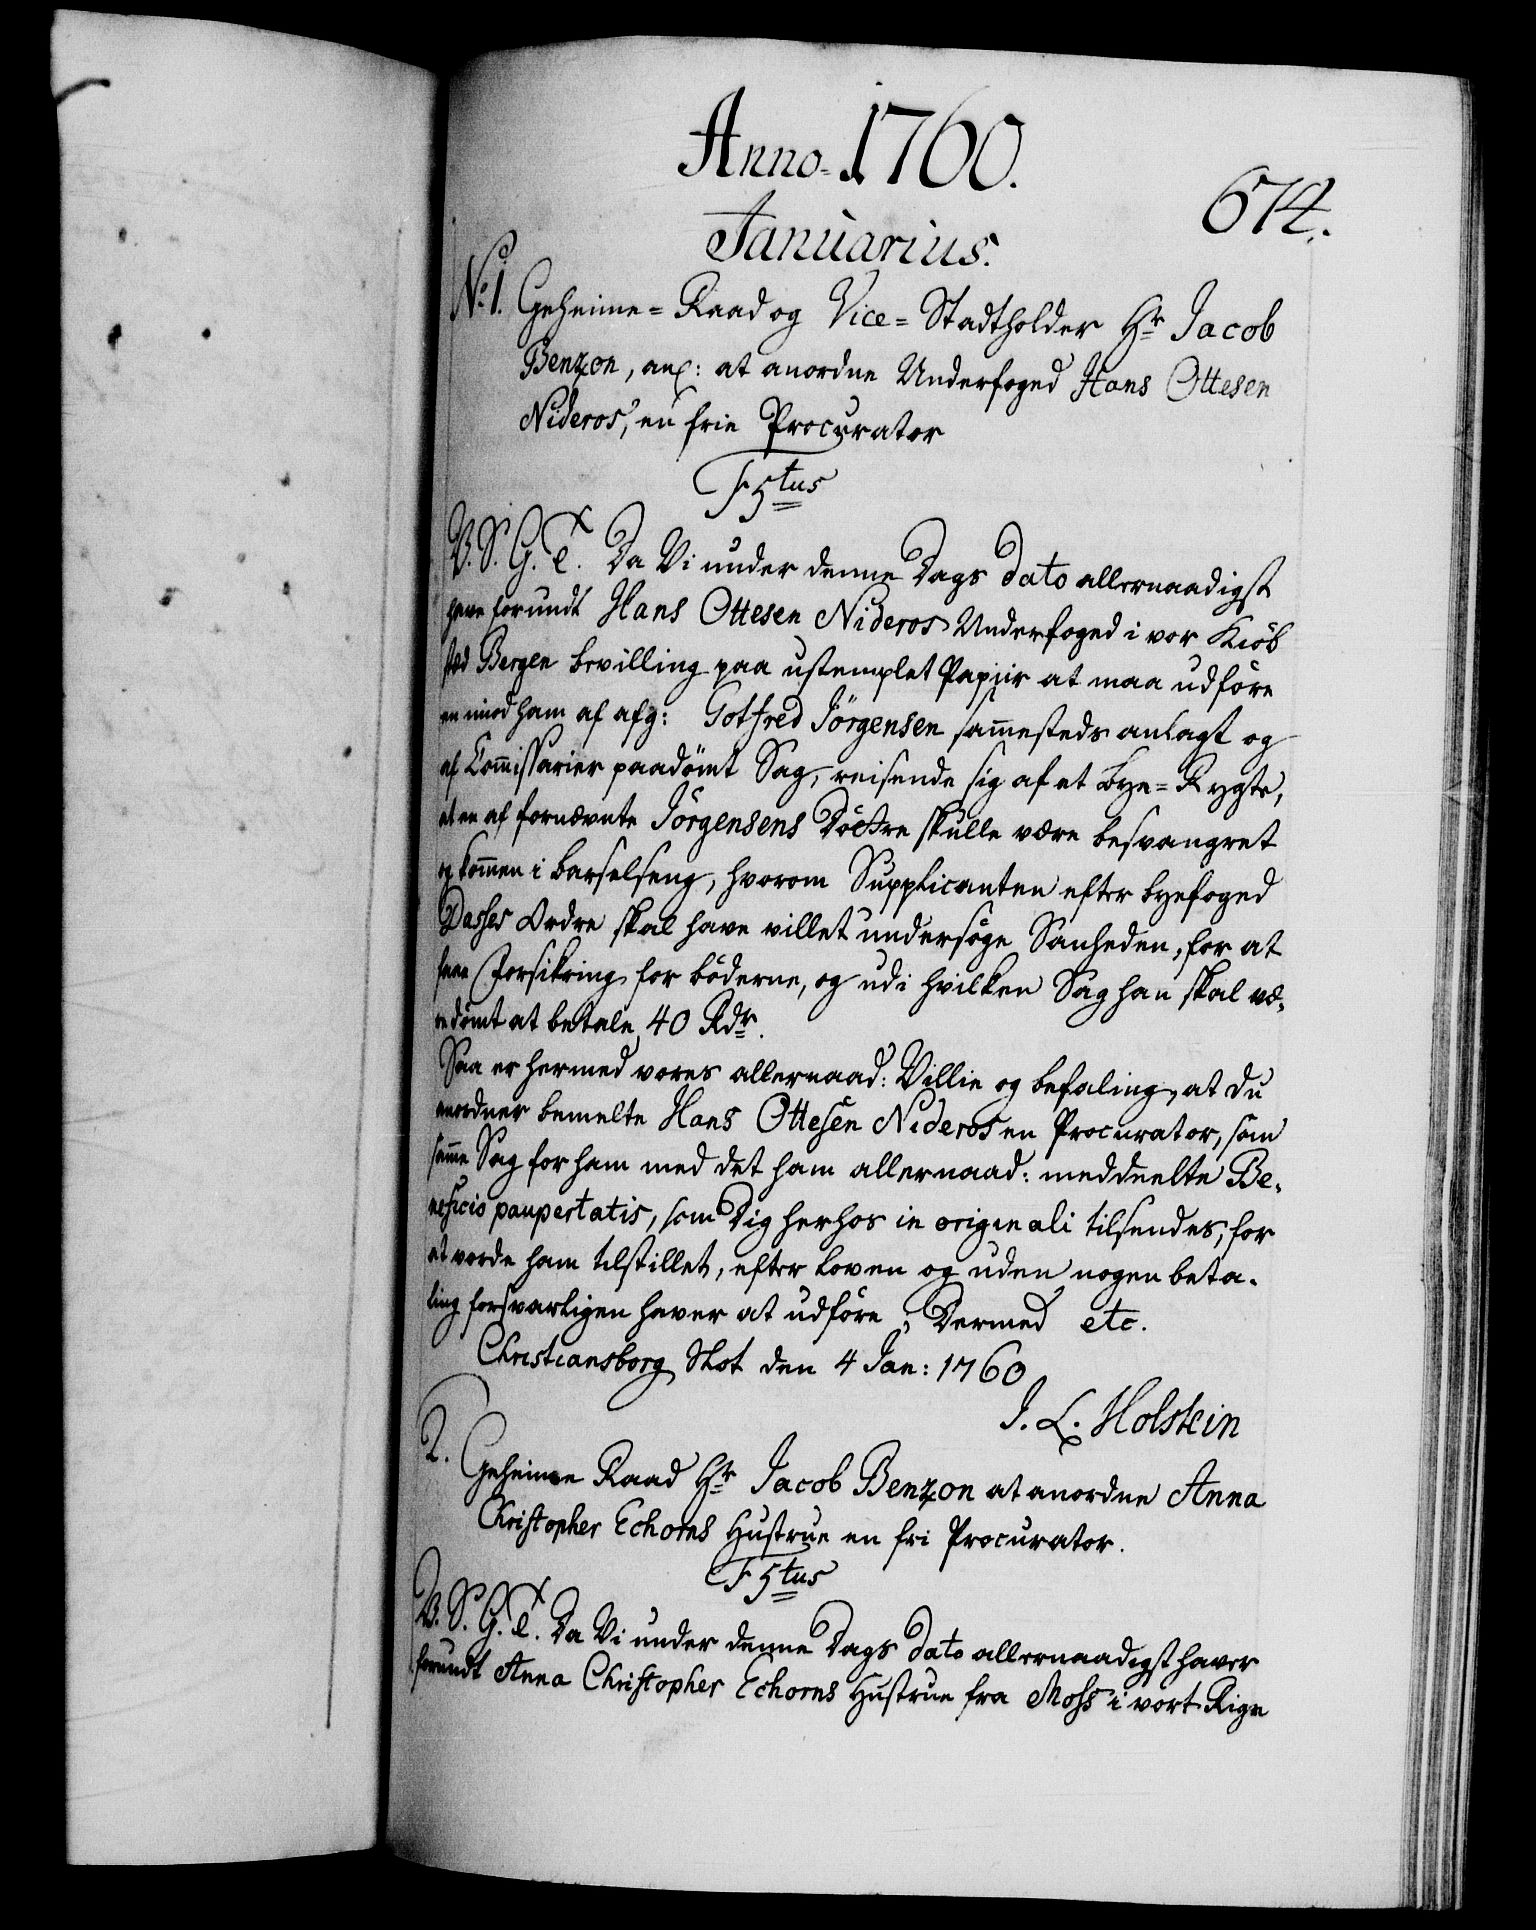 Anno 1760.
674.
Januarius.
No. 1. Geheime-Raad og Vice-Stadtholder Hr Jacob
Benzon, anl: at anordne Underfoged Hans Ottesen
Nideros, en frie Procurator
F 5tus
V. S. G. T. Da Vi under denne Dags Dato allernaadigst
have forundt Hans Ottesen Nideros Underfoged i vor Kiöb
stæd Bergen bevilling paa ustemplet Papiir at maa udföre
en imod ham af afg: Gotfred Jörgensen sammesteds anlagt og
af Commissarier paadömt Sag, reisende sig af et bye-Rygte,
at en af fornævnte Jörgensens Döttre skulle være besvangret
og kommen i barselseng, hvorom Supplicanten efter byefoged
Dasses Ordre skal have villet undersöge Sanheden, for at
faae Forsikring for böderne, og udi hvilken Sag han skal væ-
re dömt at betale 40 Rdr.
Saa er hermed vores allernaad: Villie og befaling, at du
anordner bemelte Hans Ottesen Nideros en Procurator, som
samme Sag for ham med det ham allernaad: meddeelte Be-
neficio paupertatis, som Dig herhos in originali tilsendes, for
at vorde ham tilstillet, efter Loven og uden nogen beta-
ling forsvarligen haver at udföre; Dermed etc.
Christiansborg Slot den 4 Jan: 1760
J. L. Holstein
2. Geheime Raad Hr Jacob Benzon at anordne Anna
Christopher Echorns Hustrue en fri Procurator.
F 5tus
V. S. G. T. Da Vi under denne Dags Dato allernaadigst haver
forundt Anna Christopher Echorns Hustrue fra Moss i vort Rige